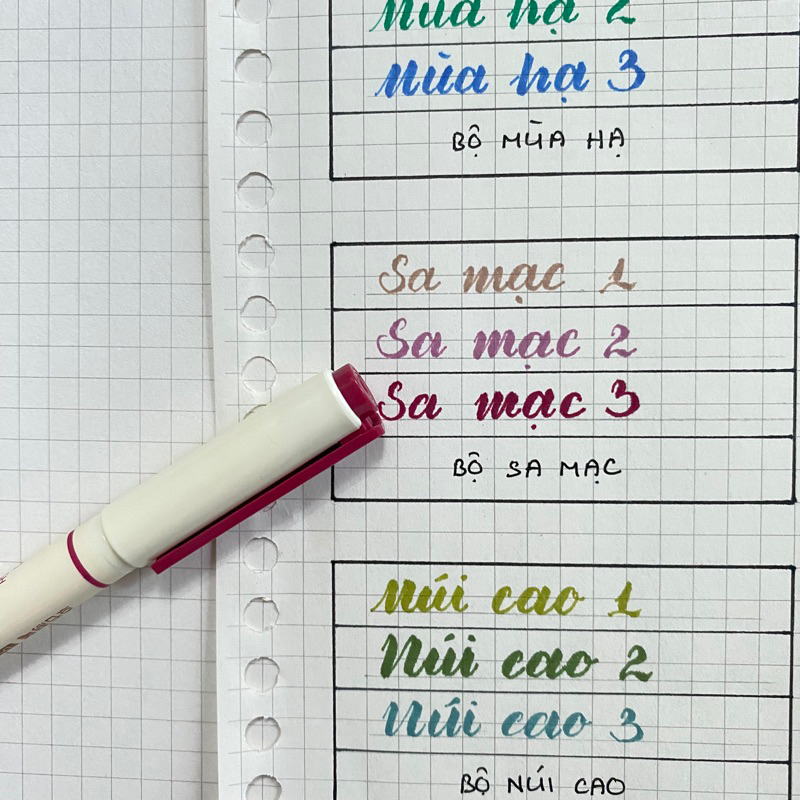 Mùa hạ 2
Mùa hạ 3
BỘ MÙA HẠ
Sa mạc 1
Sa mạc 2
Sa mạc 3
BỘ SA MẠC
Núi cao 1
Núi cao 2
Núi cao 3
BỘ NÚI CAO